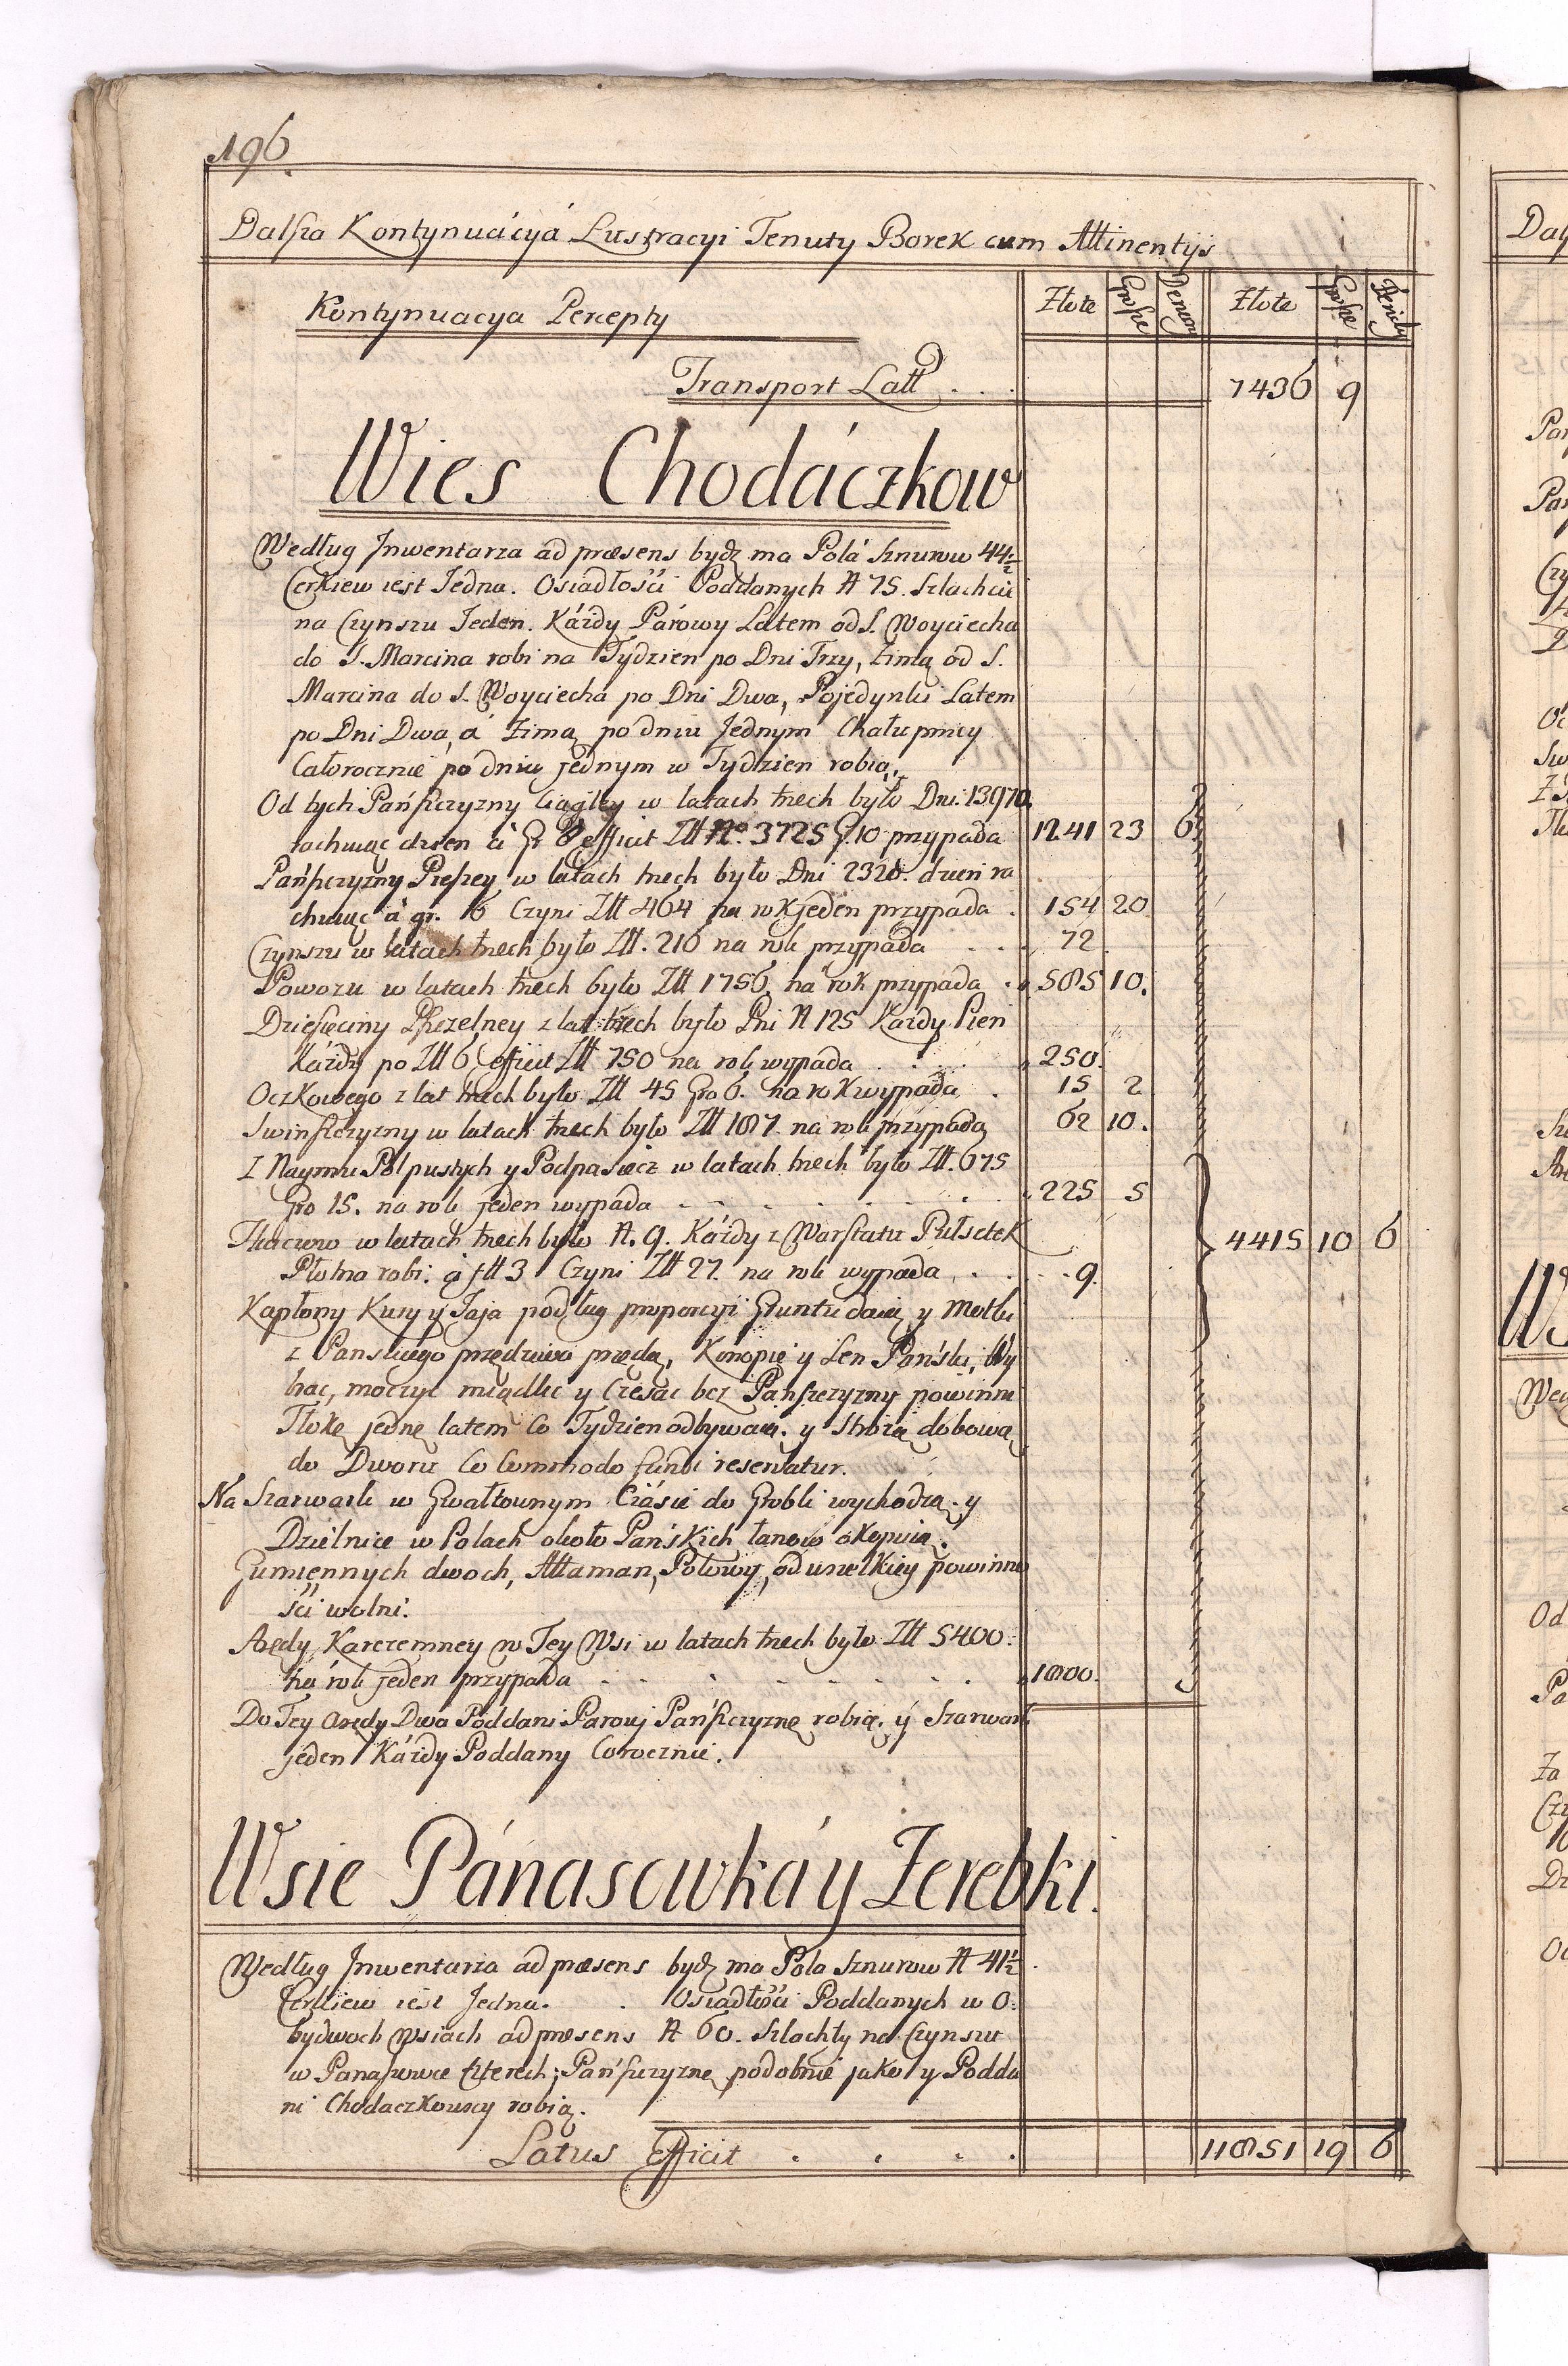 196.
Dalsza Kontynuácyá Lustracyi Tenuty Borek cum Attinentijs
Kontynuacya Percepty
Złote Grosze Denary Złote Grosze
Transport Latt . . 7436 9
Wies Chodáczkow
Według Inwentarza ad præsens bydz ma Polá Sznurow 44½
Cerkiew iest Jedna. Osiadłości Poddanych N 75. Szlachcic
na Czynszu Jeden. Káżdy Párowy Latem od S. Woyciecha
do S. Marcina robi na Tydzien po Dni Trzy, Zimą od S.
Marcina do S. Woyciecha po Dni Dwa, Pojedynki Latem
po Dni Dwa, á Zimą po dniu Jednym Chałupnicy
Całorocznie po dniu jednym w Tydzien robią.
Od tych Pańszczyzny Ciągłey w latach trzech było Dni. 13970.
rachuiąc dzien á Gr 8 efficit Złł No. 3725 G. 10 przypada 1241 23 6
Pańszczyzny Pieszey w latach trzech było Dni 2320. dzien ra
chuiąc á gr. 6 Czyni Złł 464 na rok jeden przypada . 154 20
Czynszu w latach trzech było Złł. 216 na rok przypada . . . 72
Powozu w latach trzech było Złł 1756 na rok przypada . . 585 10.
Dziesięciny Pszczelney z lat trzech było Pni N 125 Kazdy Pien
Káżdy po Złł 6 efficit Złł 750 na rok wypada . . . 250.
Oczkowego z lat trzech było Złł 45 Gro 6. na rok wypada . 15 2
Swinszczyzny w latach trzech było Złł 187. na rok przypada 62 10.
Z Naymu Pol pustych y Podpasiecz w latach trzech było Złł. 675
Gro 15. na rok jeden wypada . . . . . . . 225 5
Tkaczow w latach trzech było N. 9. Káżdy z Warsztatu Pułsetek 4415 10 6
Płotna robi. á złł 3 Czyni Złł 27. na rok wypada . . . . 9.
Kapłony Kury y Jaja podług proporcyi Gruntu daią y Motki
z Panskiego przędziwa przędą, Konopie y Len Pański, Wy
brac, moczyc miądlic y Czesac bez Pańszczyzny powinni
Tłokę jednę latem Co Tydzien odbywaią. y Strożą dobową
do Dworu Co Commodo fundi reservatur.
Na Szarwark w Gwałtownym Czásie do Grobli wychodzą. y
Dzielnice w Polach około Pańskich łanow okopuią.
Gumiennych dwoch, Attaman, Polowy, od wszelkiey powinno
ści wolni.
Arędy Karczemney w Tey Wsi w latach trzech było Złł 5400.
Ná rok jeden przypada . . . . . . . 1800.
Do Tey Arędy Dwa Poddani Parowi Pańszczyznę robią. y Szarwark
jeden Káżdy Poddany Corocznie.
Wsie Pánasowká y Zerebki.
Według Inwentarza ad præsens bydz ma Pola Sznurow N 41½.
Cerkiew iest Jedna. . Osiadłości Poddanych w O:
bydwoch Wsiach ad præsens N 60. Szlachty na Czynszu
w Panasowce Czterech; Pańszczyznę podobnie jako y Podda
ni Chodaczkowscy robią.
Latus Efficit . . . . 11851 19 6